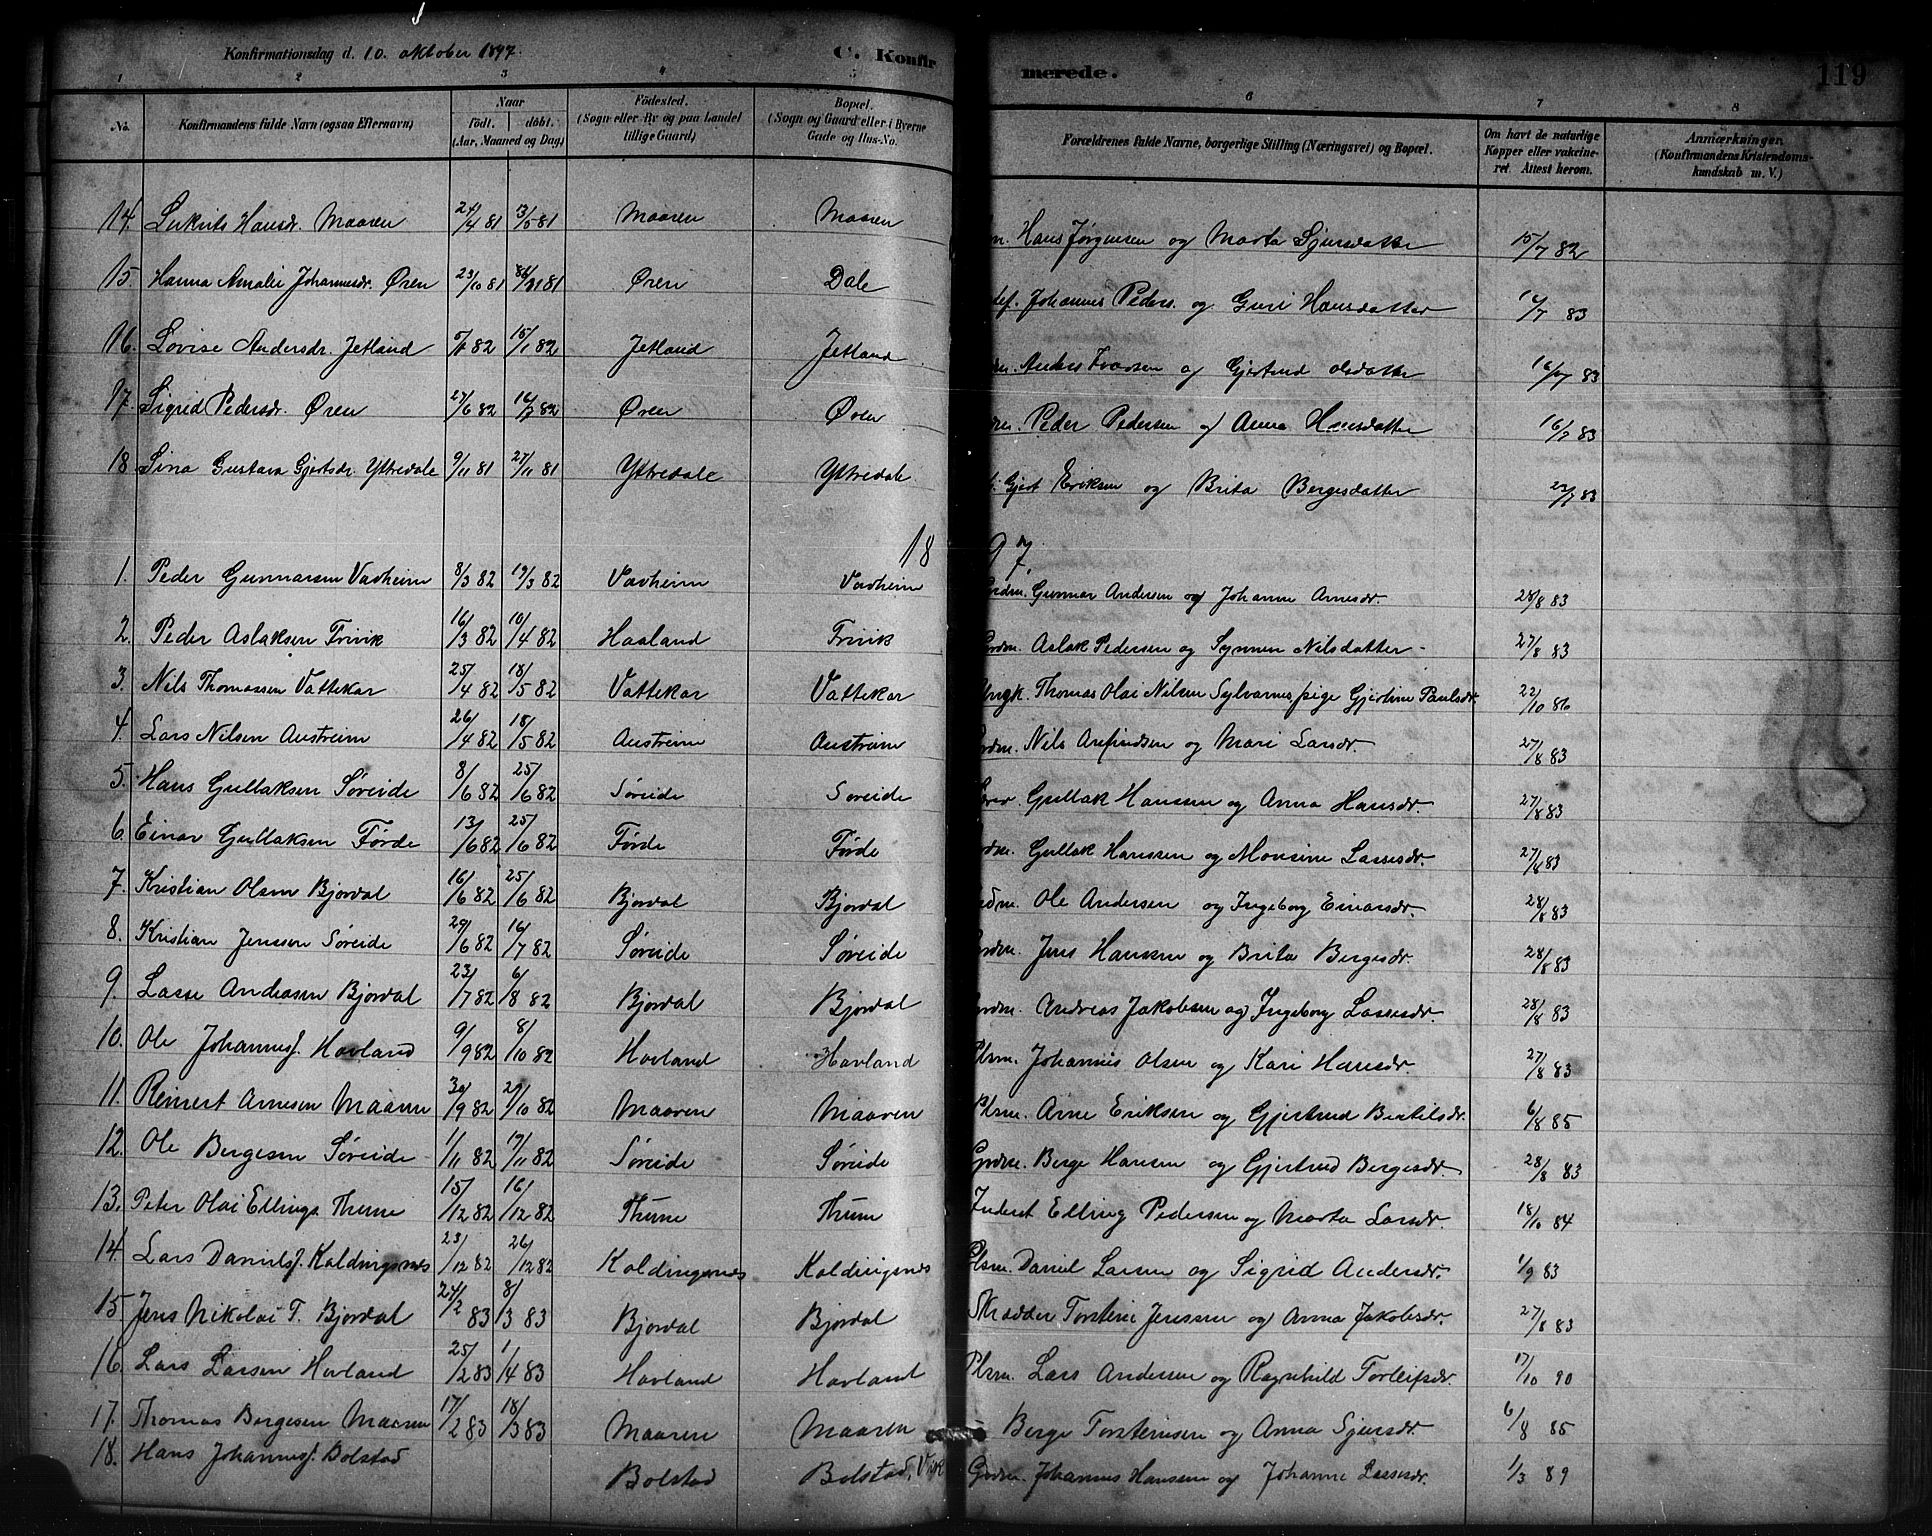 Konfirmationsdag d. 10. oktober 1897.
C. Konfirmerede.
119
1 2 3 4 5 6 7 8
No. Konfirmandens fulde Navn (ogsaa Efternavn) Naar födt. döbt. (Aar, Maaned og Dag) Födested. (Sogn eller By og paa Landet tillige Gaard) Bopæl. (Sogn og Gaard eller i Byerne Gade og Hus-No. Forældrenes fulde Navne, borgerlige Stilling (Næringsvei) og Bopæl. Om havt de naturlige Kopper eller vakcineret. Attest herom. Anmærkninger. (Konfirmandens Kristendomskundskab m. V.)
14. Hansdr. Maaren 24/4 81 13/5 81 Maaren Maaren Hans Jørgensen og Marta Sjursdatter 15/7 82
15. Hanna Amalie Johannesdr. Øren 23/10 81 81 Øren Dale Johannes Peders. og Guri Hansdatter /7 83
16. Lovise Andersdr. Jetland 82 15/1 82 Jetland Jetland Anders Ivarsen og Gjertrud Olsdatter 16/7 83
17. Sigrid Pedersdr. Øren 27/6 82 16/7 82 Øren Øren Peder Pedersen og Anna Hansdatter 16/7 83
18 Sina Gustava Gjertsdr. Yttredale 9/11 81 27/11 81 Yttredale Yttredale Gjert Eriksen og Brita Bergesdatter 83
1897.
1. Peder Gunnarsen Vadheim 8/3 82 19/3 82 Vadheim Vadheim Grdm. Gunnar Andersen og Johanne Arnesdr. 28/8 83
2. Peder Aslaksen Trivik 16/3 82 10/4 82 Haaland Trivik Grdm. Aslak Pedersen og Synnen Nilsdatter 27/8 83
3. Nils Thomassen Vattekar 25/4 82 18/5 82 Vattekar Vattekar Ungk. Thomas Olai Nilsen Sylvarnes, pige Gjertine Paulsdr. 22/10 86
4. Lars Nilsen Austreim 26/4 82 18/5 82 Austreim Austreim Grdm. Nils Arfindsen og Mari Larsdr. 27/8 83
5. Hans Gullaksen Søreide 8/6 82 25/6 82 Søreide Søreide Gullak Hansen og Anna Hansdr. 27/8 83
6. Einar Gullaksen Førde 13/6 82 25/6 82 Førde Førde Grdm. Gullak Hanssen og Monsine Lassesdr. 27/8 83
7. Kristian Olsen Bjordal 16/6 82 25/6 82 Bjordal Bjordal Grdm. Ole Andersen og Ingeborg Einarsdr. 28/8 83
8. Kristian Jenssen Søreide 29/6 82 16/7 82 Søreide Søreide Grdm. Jens Hanssen og Brita Bergesdr. 28/8 83
9. Lasse Andreasen Bjordal 23/7 82 6/8 82 Bjordal Bjordal Grdm. Andreas Jakobsen og Ingeborg Lassesdr. 28/8 83
10. Ole Johannesj. Hovland 9/9 82 8/10 82 Hovland Hovland Plsm. Johannes Olsen og Kari Hansdr. 27/8 83
11. Reinert Arnesen Maaren 30/9 82 29/10 82 Maaren Maaren Plsm. Arne Eriksen og Gjertrud Bertilsdr. 6/8 85
12. Ole Bergesen Søreide 1/11 82 19/11 82 Søreide Søreide Grdm. Berge Hansen og Gjertrud Bergesdr. 28/8 83
13. Peter Olai Ellings Thune 15/12 82 16/12 82 Thune Thune Inderst Elling Pedersen og Marta Larsdr. 18/10 84
14. Lars Danielsj. Koldingsnes 23/12 82 26/12 82 Koldingsnes Koldingsnes Plsm. Daniel Larsen og Sigrid Andersdr. 1/9 83
15. Jens Nikolai T. Bjordal 24/2 83 8/3 83 Bjordal Bjordal Skrædder Torstein Jenssen og Anna Jakobsdr. 27/8 83
16. Lars Larsen Hovland 25/2 83 1/4 83 Hovland Hovland Plsm. Lars Andersen og Ragnhild Torleifsdr. 17/10 90
17. Thomas Bergesen Maaren 17/2 83 18/3 83 Maaren Maaren Berge Torsteinsen og Anna Sjursdr. 6/8 85
18. Hans Johannesj. Bolstad Bolstad Bolstad, Vik Grdm. Johannes Hanssen og Johanne Lassesdr. 1/3 89